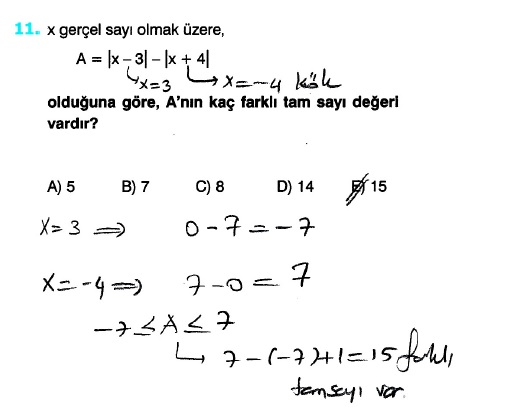 11. x gerçel sayı olmak üzere,
A = |x – 3| – |x + 4|
x=3 x=-4 kök
olduğuna göre, A'nın kaç farklı tam sayı değeri
vardır?
A) 5 B) 7 C) 8 D) 14 E) 15
x=3 ⇒ 0-7=-7
x=-4 ⇒ 7-0=7
-7≤A≤7
7-(-7)+1=15 farklı
tamsayı var.